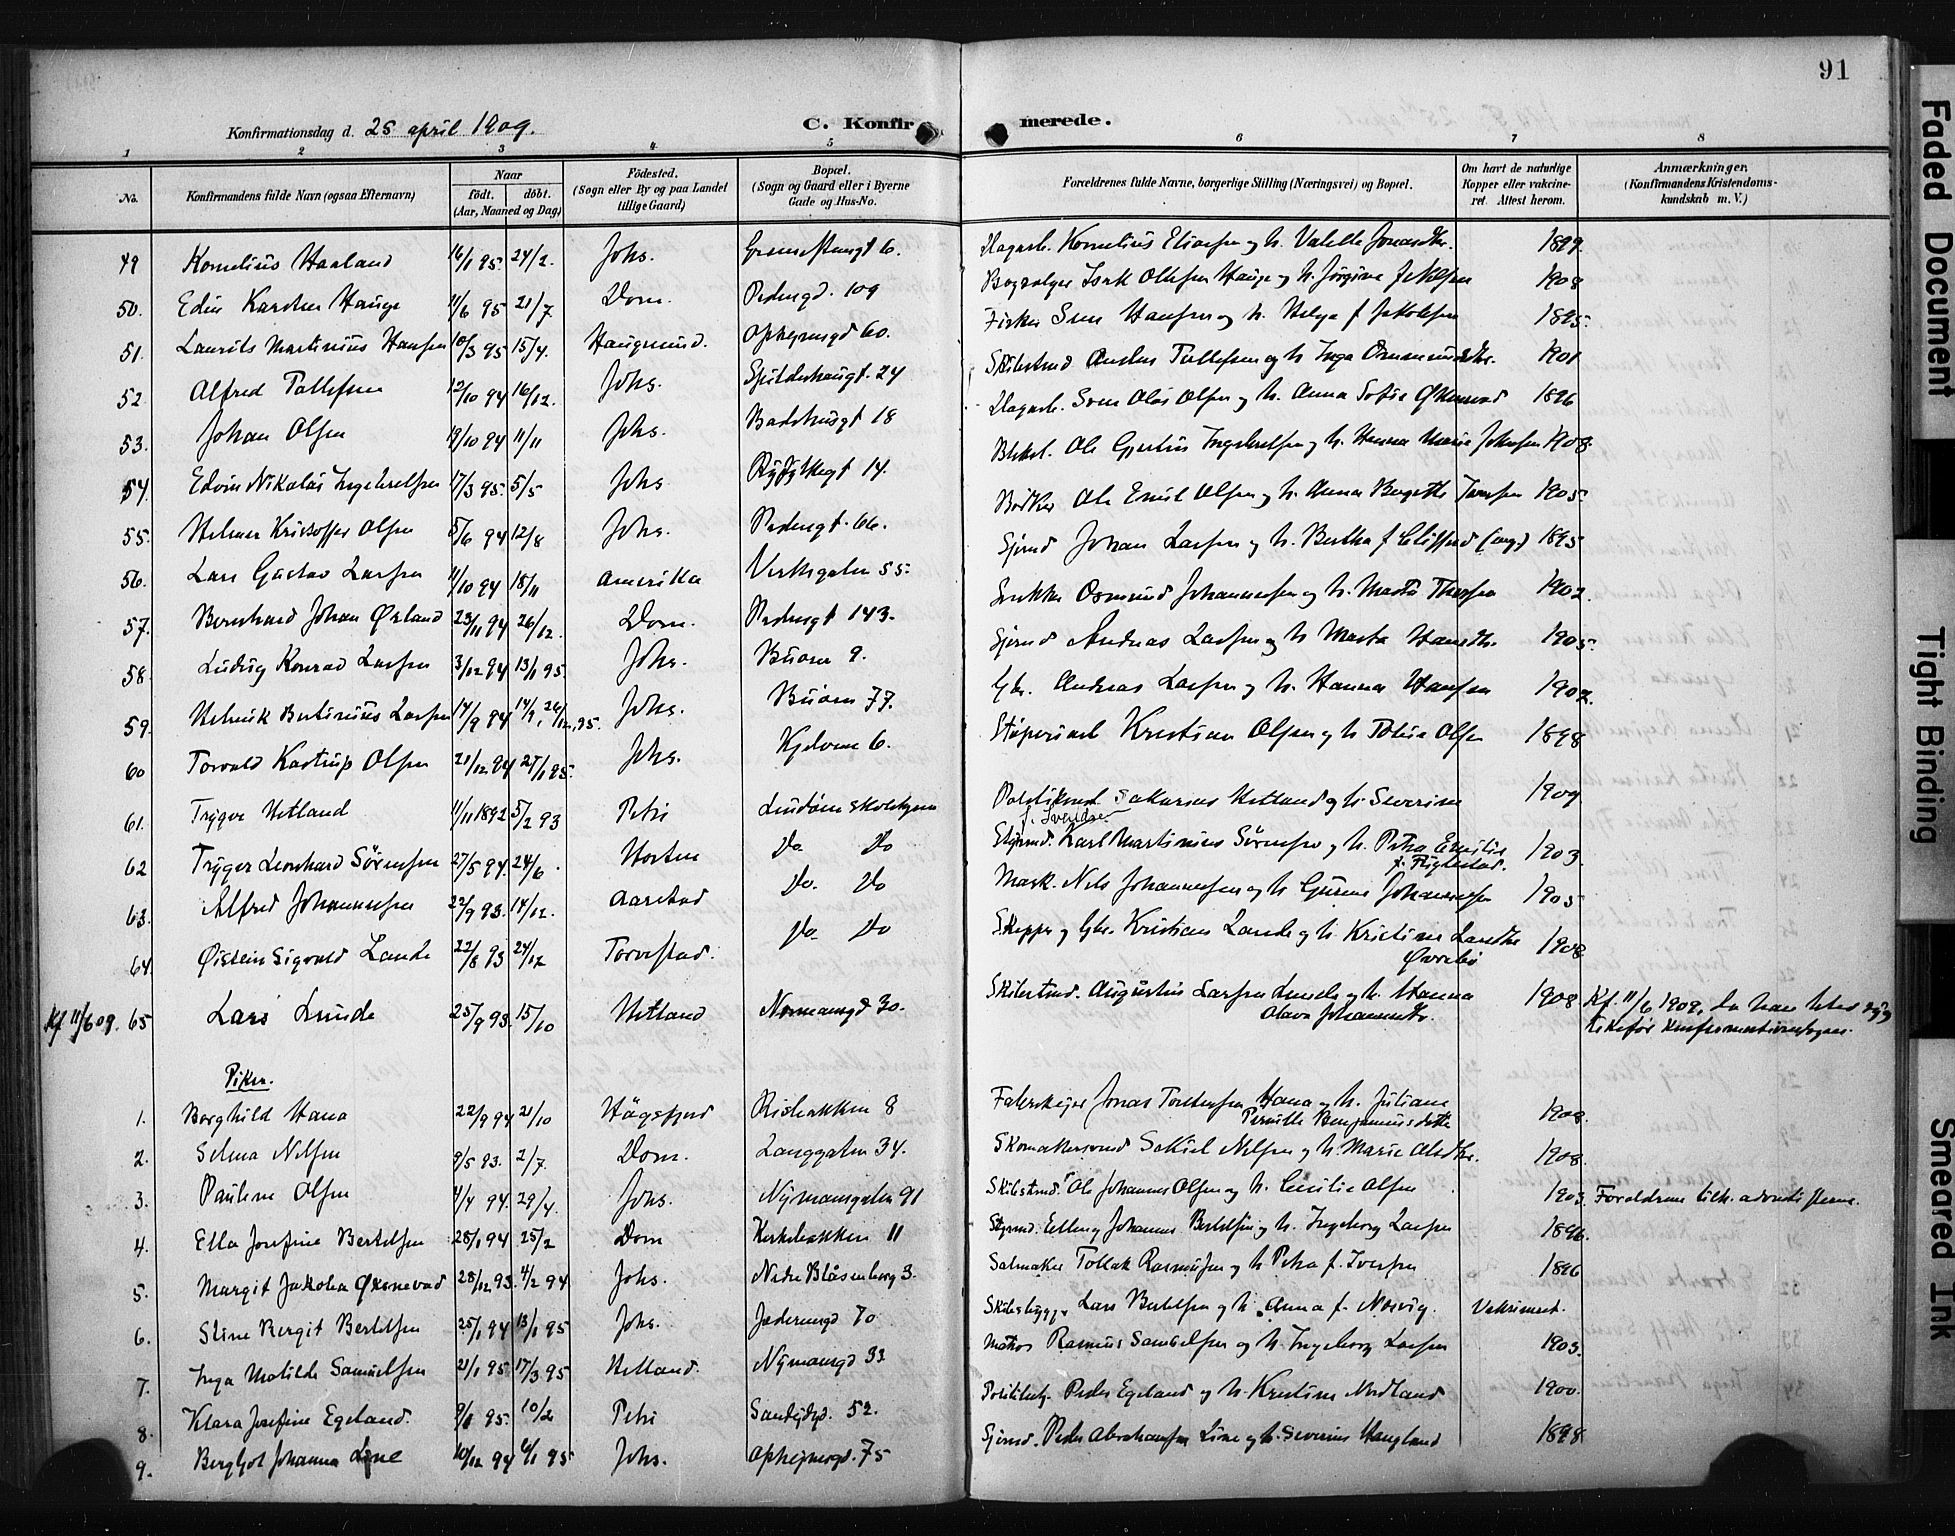 91
Konfirmationsdag d. 25 april 1909.
C. Konfir merede.
1 2 3 4 5 6 7 8
No.
Konfirmandens fulde Navn (ogsaa Efternavn)
Naar
født. døbt.
(Aar, Maaned og Dag)
Fødested.
(Sogn eller By og paa Landet
tillige Gaard)
Bopæl.
(Sogn og Gaard eller i Byerne
Gade og Hus-No.
Forældrenes fulde Navne, borgerlige Stilling (Næringsvei) og Bopæl.
Om havt de naturlige
Kopper eller vakcine-
ret. Attest herom.
Anmærkninger.
(Konfirmandens Kristendoms-
kundskab m. V.)
49 Kornelius Haaland 16/1 95. 24/2. Johs. 6. Kornelius Eliasen og h. Valette Jonasdtr. 1899.
50. Edin Karsten Hauge 11/6 95 21/7 Dom. Pedersgd. 109 Isak Olsen Hauge og h. Jørgine f. Nilsen 1908
51. Laurits Martinius Hansen 10/3 95 15/4. Haugesund. Ophejmsgd 60. Fisker Sven Hansen og h. Helga f. Jakobsen 1895.
52. Alfred Tollefsen 12/10 94 16/12. Johs. Spilderhaugt. 24 Skibstmd Anders Tollefsen og h Inga Osmundsdtr. 1901
53. Johan Olsen 19/10 94 11/11 Johs. Badehusgt 18 Sven Olai Olsen og h. Anna Sofie 1896
54. Edvin Nikolai Ingebretsen 17/3 95. 5/5 Johs Ryfylkegt 14. Ole Gjertin Ingebretsen og h. Hanna Marie Johnsen 1908.
55. Helmer Kristoffer Olsen 5/6 94 12/8 Johs. Pedersgt. 66. Bødker Ole Emil Olsen og h. Anna Bergitte Iversen 1905
56. Lars Gustav Larsen 11/10 94 18/11 Amerika Verksgaten 55. Sjømd Johan Larsen og h. Bertha f. 1895
57. Bernhard Johan Øxland 23/11 94 26/12. Dom. Pedersgt 143. Snekker Osmund Johannesen og h. Marta 1902.
58. Ludvig Konrad Larsen 3/12 94 13/1 95. Johs. Buøen 9. Sjømd Andreas Larsen og h Marta Hansdtr. 1905.
59. Henrik Bertinius Larsen 14/9 94 Johs. Buøen 77. Gbr. Andreas Larsen og h. Hanna Hansen 1902.
60 Torvald Kastrup Olsen 21/12 94 27/1 95. Johs. Kjelvene 6. Støperiarb Kristian Olsen og h Tobia Olsen 1898
61. Trygve Hetland 11/11 1892 5/2 93 Petri Lindøens skolehjem Sakarias Hetland og h. Severine
f. Svendsen 1909
62 Trygve Leonhard Sørensen 27/5 94. 24/6 Horten Do Do Styrmd. Karl Martinius Sørensen og h. Petra Emilie 1903.
63. Alfred Johannesen 22/9 93. 14/12. Aarstad Do. Do Mask. Nils Johannesen og h Gurine Johannesen 1905
64. Øistein Sigvald Lande 22/8 93 24/12 Torvestad. Do Do Skipper og Gbr. Kristian Lande og h. Kristine Lande
Øvrebø 1908
Kf 11/6 09. 65 Lars Lunde 25/9 93. 15/10 Hetland Normansgd 30. Skibstmd. Augustin Larsen Lunde og h. Hanna
Olava Johannesdtr. 1908 Kf. 11/6 1909, da han blev syg
like før konfirmationsdagen.
Piker.
1. Borghild Hana 22/9 94 21/10 Høgsfjord Risbakken 8 Jonas Torstensen Hana og h. Juliane
Pernille Benjaminsdatter 1908.
2. Selma Nilsen 9/5 93. 2/7. Dom. Langgaten 34. Skomakersvend Sakiel Nilsen og h. Marie Olsdtr. 1908.
3. Pauline Olsen 4/4 94. 29/4. Johs. Nymansgaten 91 Skibstmd. Ole Johannes Olsen og h. Cecilie Olsen 1903. Forældrene tilh. adventisterne.
4. Ella Josefine Bertelsen 28/1 94 25/2 Dom Kirkebakken 11 Styrmd. Elling Johannes Bertelsen og h. Ingeborg Larsen 1896.
5. Margit Jakoba Øksnevad 28/12 93. 4/2 94 Johs. Nedre Blåsenborg 3. Salmaker Tollak Rasmusen og h Petra f. Iversen 1896
6. Stine Bergit Bertelsen 25/1 94 13/1 95 Johs. Jæderensgd 70 Skibsbygger Lars Bertelsen og h. Anna f. Nærvig. Vaksineret.
7. Inga Matilde Samuelsen 21/1 95 17/3 95 Hetland. Nymansgd 33 Matros Rasmus Samuelsen og h. Ingeborg Larsen 1903.
8. Klara Josefine Egeland. 9/1 95. 10/2 Petri Sandeidgd. 52. Politibetj. Peder Egeland og h. Kristine Nordland 1900.
9. Bergljot Johanna Line 10/12 94 6/1 95 Johs. Ophejmsgd. 75 Sjømd. Peder Abrahamsen Line og h. Severine Haugland 1898
Faded Document
Tight Binding
Smeared Ink